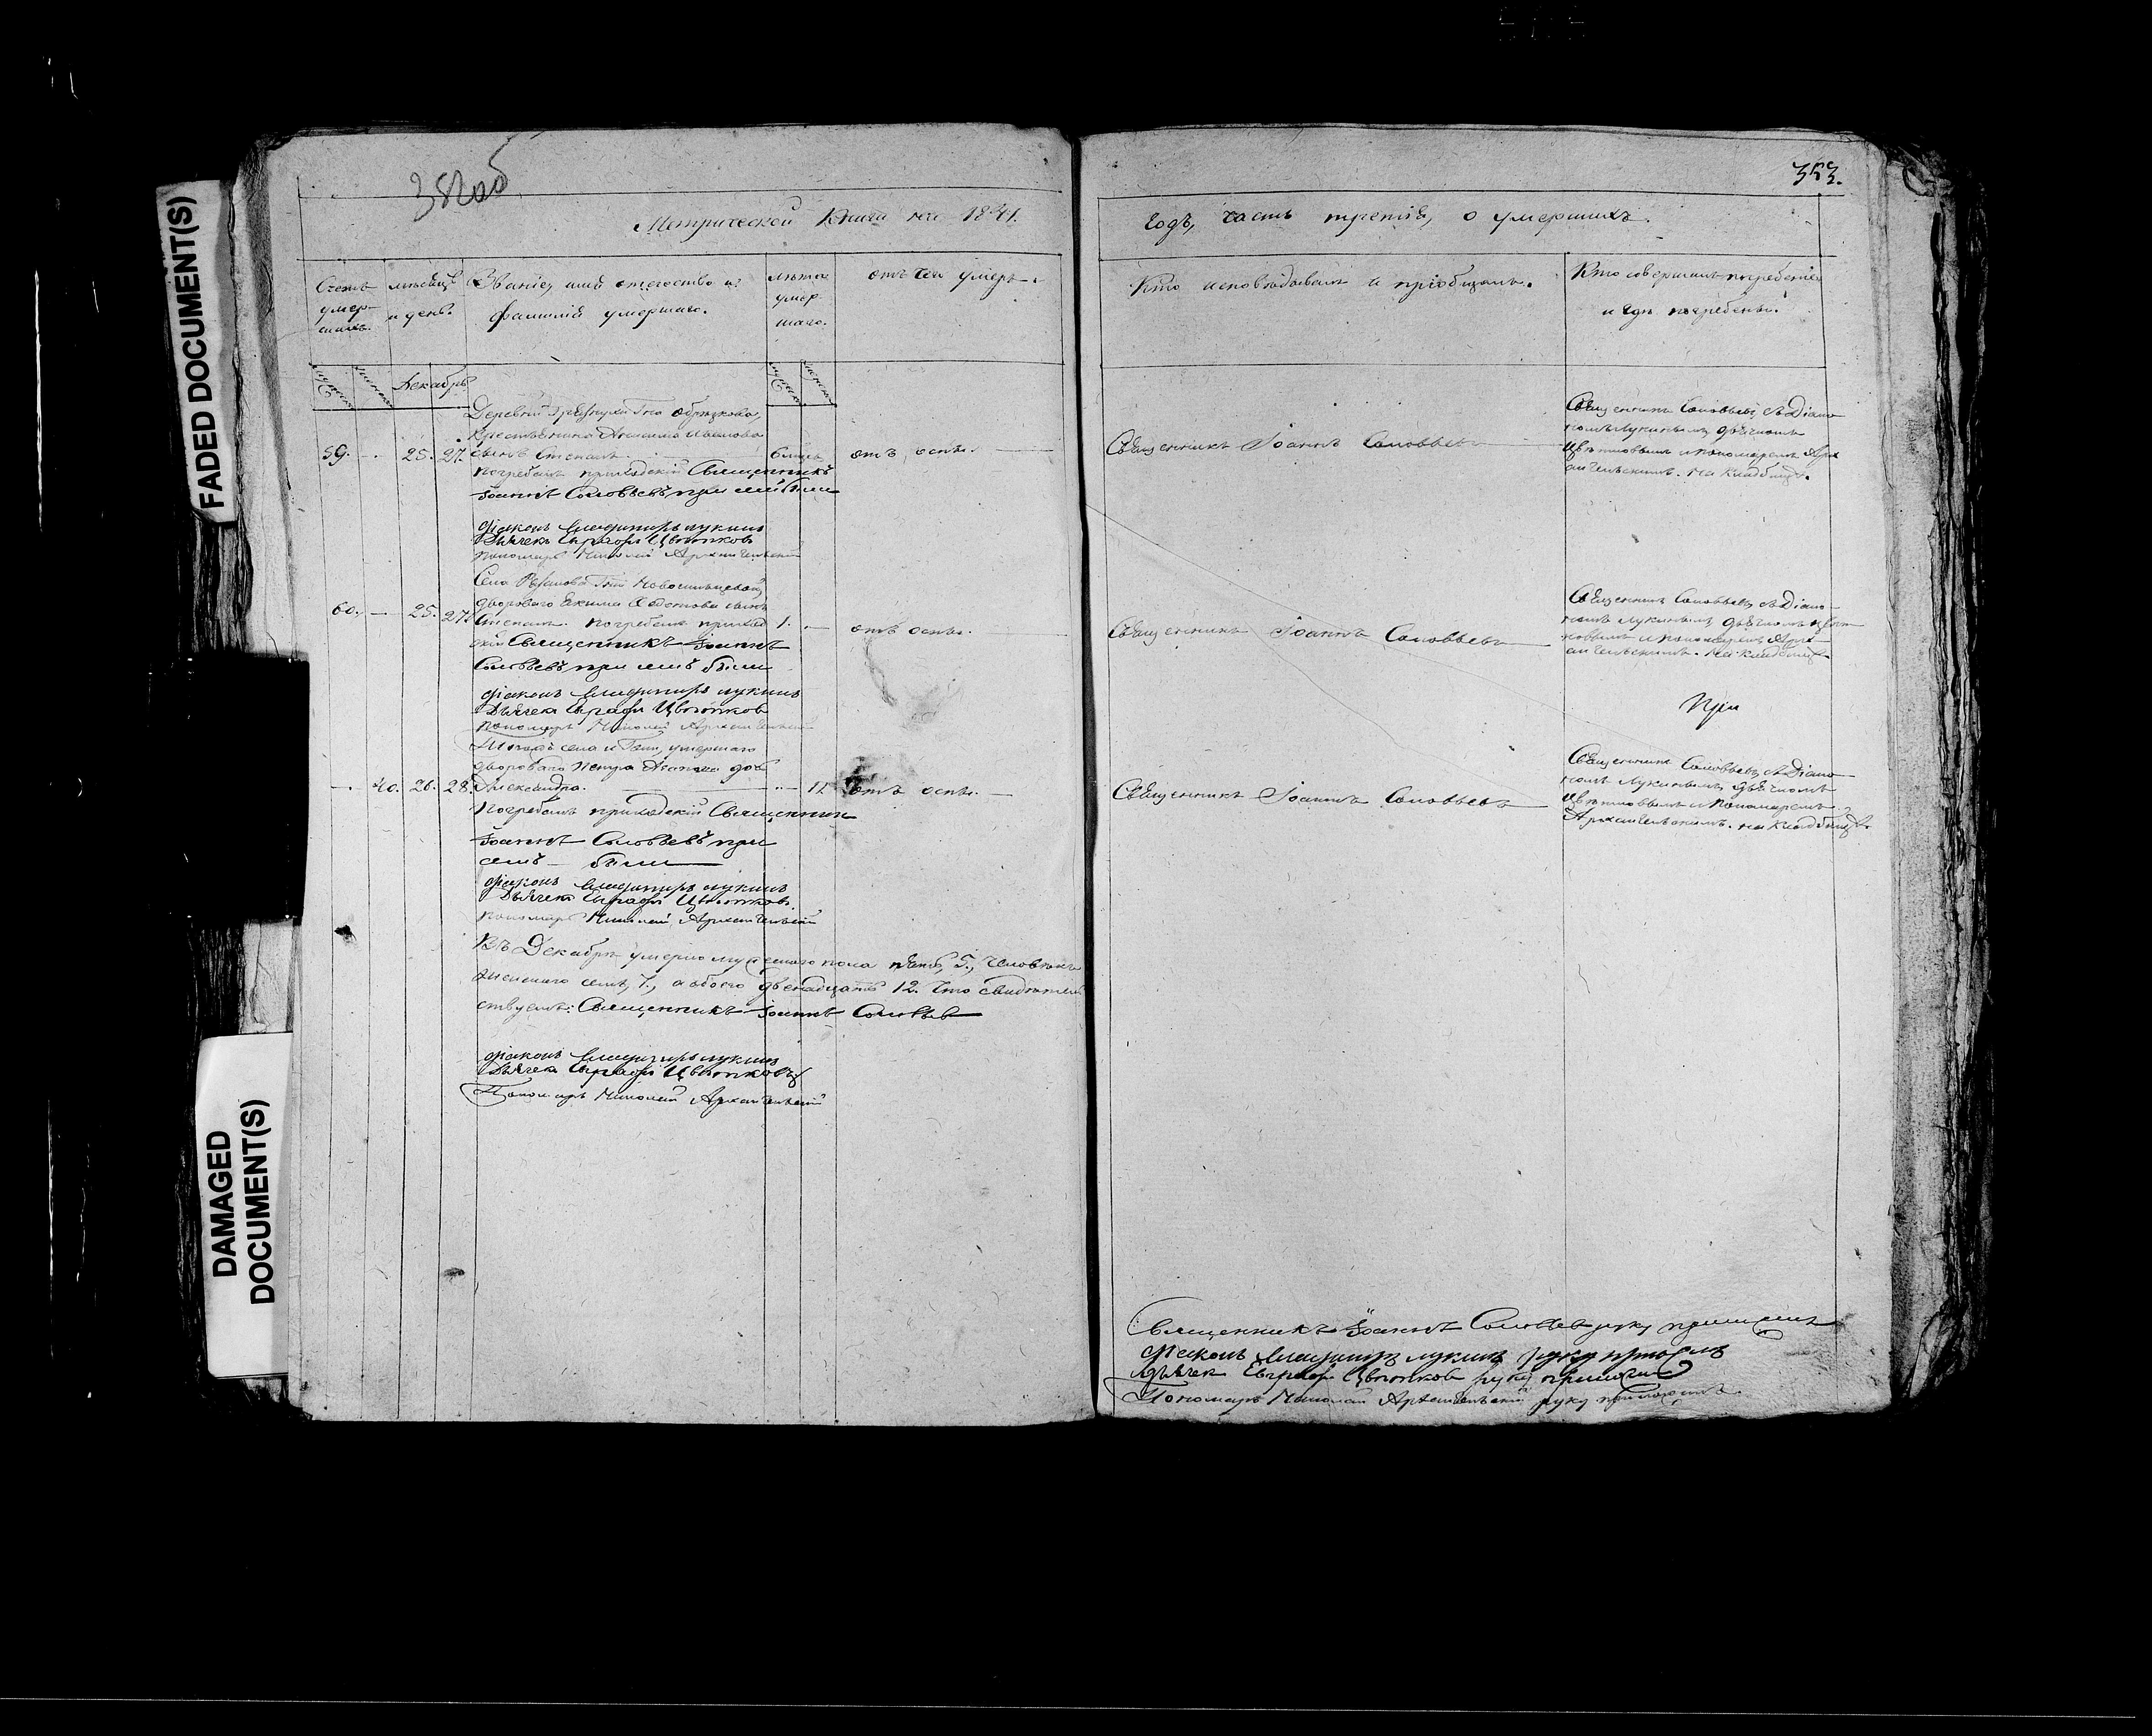 FADED DOCUMENT(S)
DAMAGED
DOCUMENT(S)
382об
Метрической Книги на 1841.
Счетъ
умер-
шихъ.
мѣсяцъ
и день.
Званіе, имя отечество и
фамилія умершаго.
лѣта
умер
шаго.
отъ чего умеръ.
Декабрь
Деревни Госп. Обрѣзкова,
крестьянина Иванова
59. 25. 27. сынъ Степанъ. 6 мѣсяц. отъ оспы.
погребалъ приходскій Священникъ
Іоаннъ Соловьевъ при семъ были
діаконъ Владимиръ Лукинъ
Дьячекъ Евграфъ Цвѣтковъ
пономарь Николай Архангельскій
Села Госп. Новосильцевой
двороваго Екима сынъ
60. 25. 27. Степанъ. погребалъ приход 1. отъ оспы.
скій Священникъ Іоаннъ
Соловьевъ при семъ были
діаконъ Владимиръ Лукинъ
Дьячекъ Евграфъ Цвѣтковъ
пономарь Николай Архангельскій
Тогожъ села и Госп. умершаго
двороваго Петра дочь
40. 26. 28. Александра. 12 отъ оспы.
Погребалъ приходскій Священникъ
Іоаннъ Соловьевъ при
семъ были
діаконъ Владимиръ Лукинъ
Дьячекъ Евграфъ Цвѣтковъ.
пономарь Николай Архангельскій
Въ Декабрѣ умерло мужескаго пола пять, 5, человѣкъ
женскаго семь, 7, а обоего двенадцать 12. Что свидѣтель
ствуемъ: Священникъ Іоаннъ Соловьев
діаконъ Владимиръ Лукинъ
Дьячекъ Евграфъ Цвѣтковъ
Пономарь Николай Архангельскій
353.
Годъ, часть третія, о умершихъ.
Кто исповѣдывалъ и пріобщалъ.
Кто совершалъ погребеніе
и гдѣ погребены.
Священникъ Іоаннъ Соловьевъ
Священникъ Соловьевъ, съ Діако-
номъ Лукинымъ, дьячкомъ
Цвѣтковымъ и пономаремъ Арх
ангельскимъ. На кладбищѣ.
Священникъ Іоаннъ Соловьевъ
Священникъ Соловьевъ, съ Діако-
номъ Лукинымъ, дьячкомъ Цвѣт
ковымъ и пономаремъ Арх-
ангельскимъ. На кладбищѣ.
При
Священникъ Іоаннъ Соловьевъ
Священникъ Соловьевъ, съ Діако-
номъ Лукинымъ, дьячкомъ
Цвѣтковымъ и пономаремъ
Архангельскимъ. на кладбищѣ.
Священникъ Іоаннъ Соловьев руку приложилъ
діаконъ Владимиръ Лукинъ руку приложилъ
дьячек Евграфъ Цвѣтков руку приложилъ
Пономарь Николай Архангельскій руку приложилъ.